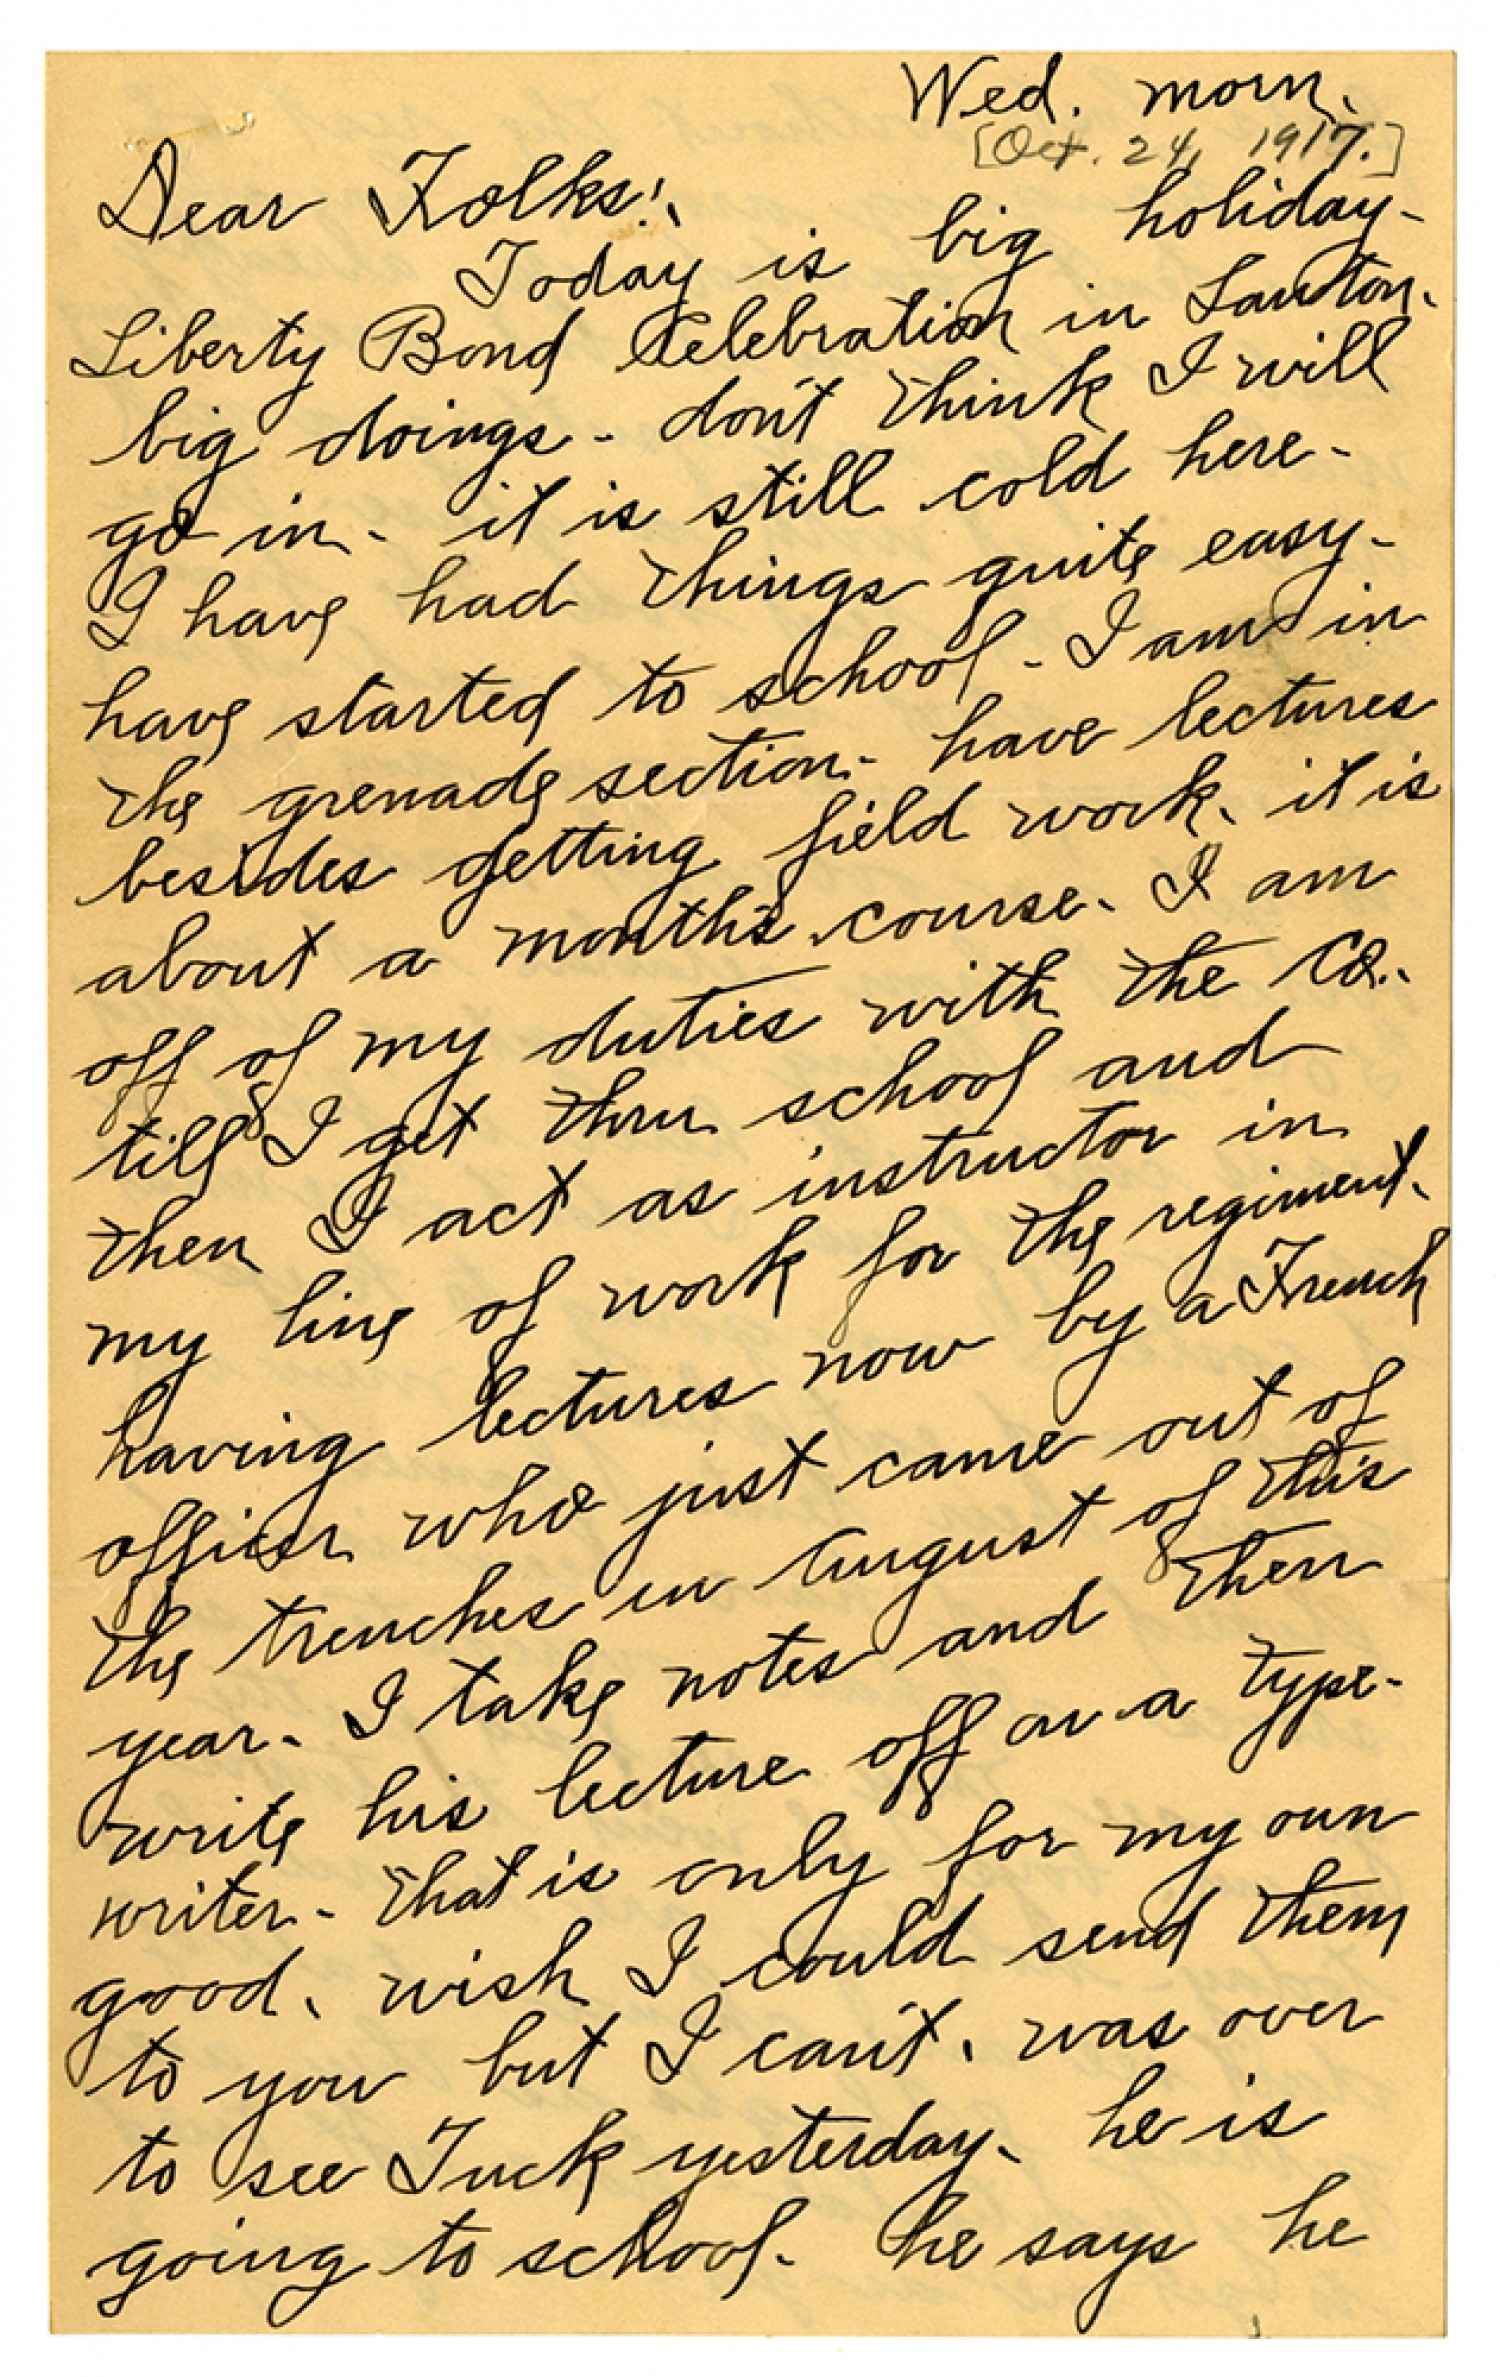 Wed. morn.
[Oct. 24, 1917.]
Dear Folks!
Today is big holiday-
Liberty Bond Celebration in Lawton.
big doings - don't think I will
go in - it is still cold here -
I have had things quite easy -
have started to school - I am in
the grenade section - have lectures
besides getting field work. it is
about a month's course. I am
off of my duties with the Co.
till I get thru school and
then I act as instructor in
my line of work for the regiment.
having lectures now by a French
officer who just came out of
the trenches in August of this
year. I take notes and then
write his lecture off on a type-
writer - that is only for my own
good. wish I could send them
to you but I can't. was over
to see Tuck yesterday. he is
going to school. he says he